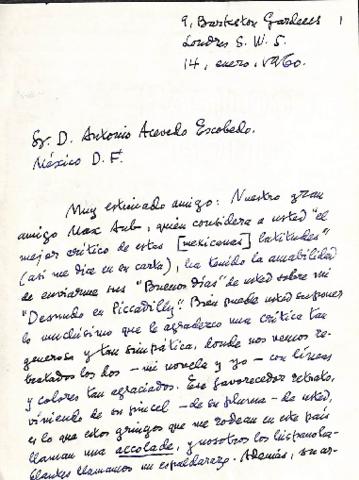 9, Barkston Gardens 1
Londres S.W.5.
14, enero, 1960.
Sr. D. Antonio Acevedo Escobedo.
México D.F.
Muy estimado amigo: Nuestro gran
amigo Max Aub, quien considera a usted "el
mejor crítico de estas [mexicanas] latitudes"
(así me dice en su carta), ha tenido la amabilidad
de enviarme sus "Buenos días" de usted sobre mi
"Desnudo en Piccadilly". Bien puede usted suponer
lo muchísimo que le agradezco una crítica tan
generosa y tan simpática, donde nos vemos re-
tratados los dos — mi novela y yo — con líneas
y colores tan agraciados. Ese favorecedor retrato,
viniendo de su pincel — de su pluma — de usted,
es lo que estos gringos que me rodean en este país
llaman una accolade, y nosotros los hispanoha-
blantes llamamos un espaldarazo. Además, su ar-